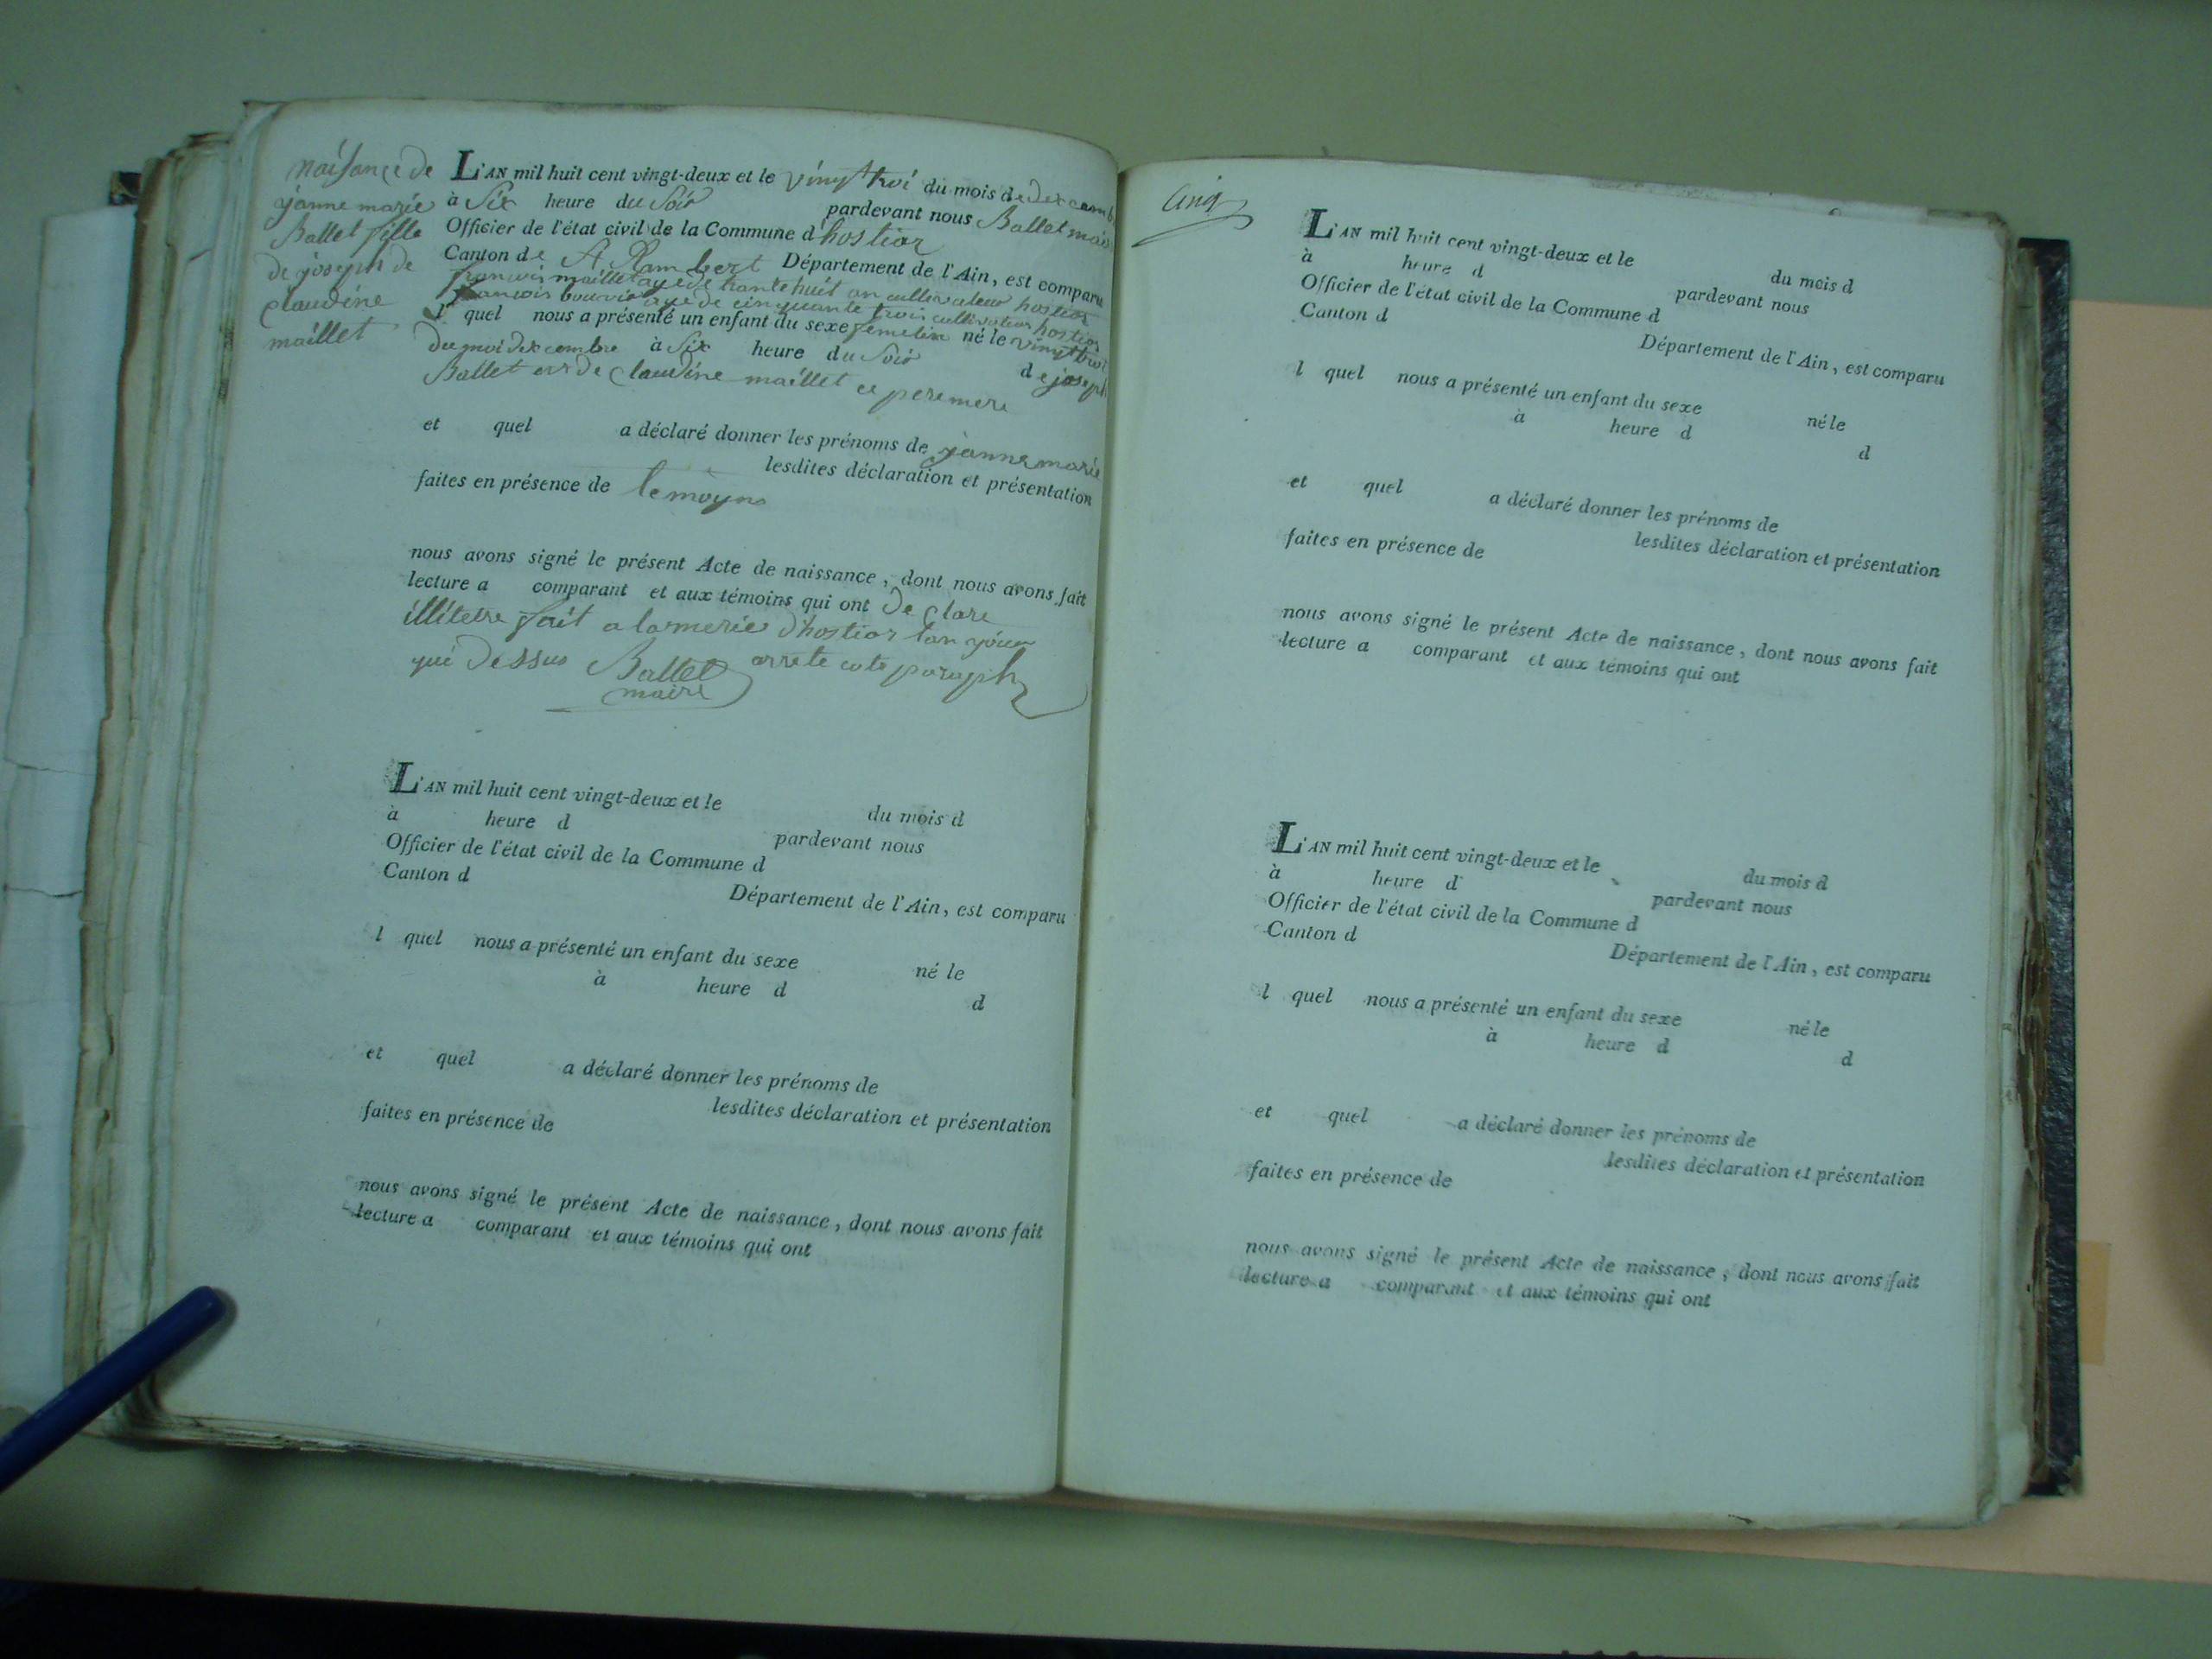 naisance de
janne marie
Ballet fille
de joseph de
claudine
maillet
L'AN mil huit cent vingt-deux et le vingt troi du mois de dexcemb
à Six heure du Soir pardevant nous Ballet mair
Officier de l'état civil de la Commune d'hostiaz
Canton de St Rambert Département de l'Ain, est comparu
francois maillet age de trante huit an cultivateur hostiaz
francois bouvier age de cinquante trois cultivateur hostiaz
l quel nous a présenté un enfant du sexe femelin né le vingt troi
du moi dexcembre à Six heure du Soir de joseph
Ballet et de claudine maillet ce pere mere
et quel a déclaré donner les prénoms de janne marie
lesdites déclaration et présentation
faites en présence de temoyns
nous avons signé le présent Acte de naissance, dont nous avons fait
lecture a comparant et aux témoins qui ont de clare
illitere fait a la merie d'hostiaz lan jour
qui dessus Ballet arrete cote paraph
maire
L'AN mil huit cent vingt-deux et le du mois d
à heure d pardevant nous
Officier de l'état civil de la Commune d
Canton d Département de l'Ain, est comparu
l quel nous a présenté un enfant du sexe né le
à heure d d
et quel a déclaré donner les prénoms de
lesdites déclaration et présentation
faites en présence de
nous avons signé le présent Acte de naissance, dont nous avons fait
lecture a comparant et aux témoins qui ont
Cinq
L'AN mil huit cent vingt-deux et le du mois d
à heure d pardevant nous
Officier de l'état civil de la Commune d
Canton d Département de l'Ain, est comparu
l quel nous a présenté un enfant du sexe né le
à heure d d
et quel a déclaré donner les prénoms de
lesdites déclaration et présentation
faites en présence de
nous avons signé le présent Acte de naissance, dont nous avons fait
lecture a comparant et aux témoins qui ont
L'AN mil huit cent vingt-deux et le du mois d
à heure d pardevant nous
Officier de l'état civil de la Commune d
Canton d Département de l'Ain, est comparu
l quel nous a présenté un enfant du sexe né le
à heure d d
et quel a déclaré donner les prénoms de
lesdites déclaration et présentation
faites en présence de
nous avons signé le présent Acte de naissance, dont nous avons fait
lecture a comparant et aux témoins qui ont